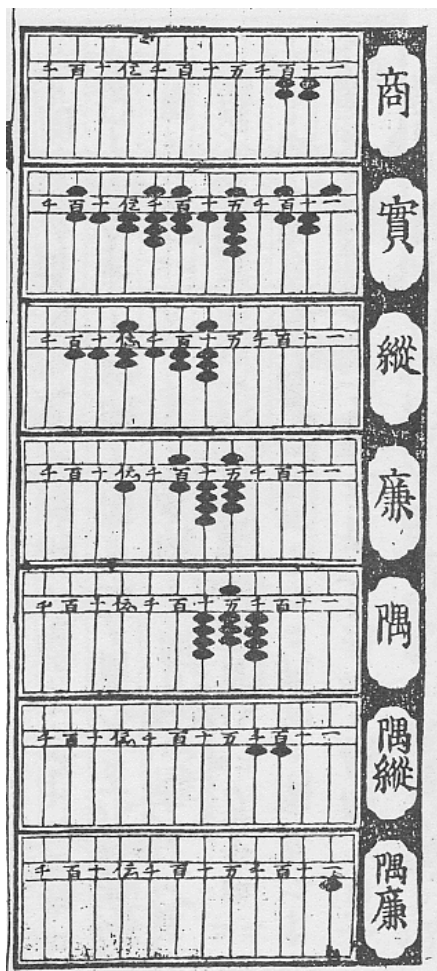 千百十億千百十万千百十一
商
千百十億千百十万千百十一
實
千百十億千百十万千百十一
縱
千百十億千百十万千百十一
廉
千百十億千百十万千百十一
隅
千百十億千百十万千百十一
隅縱
千百十億千百十万千百十一
隅廉